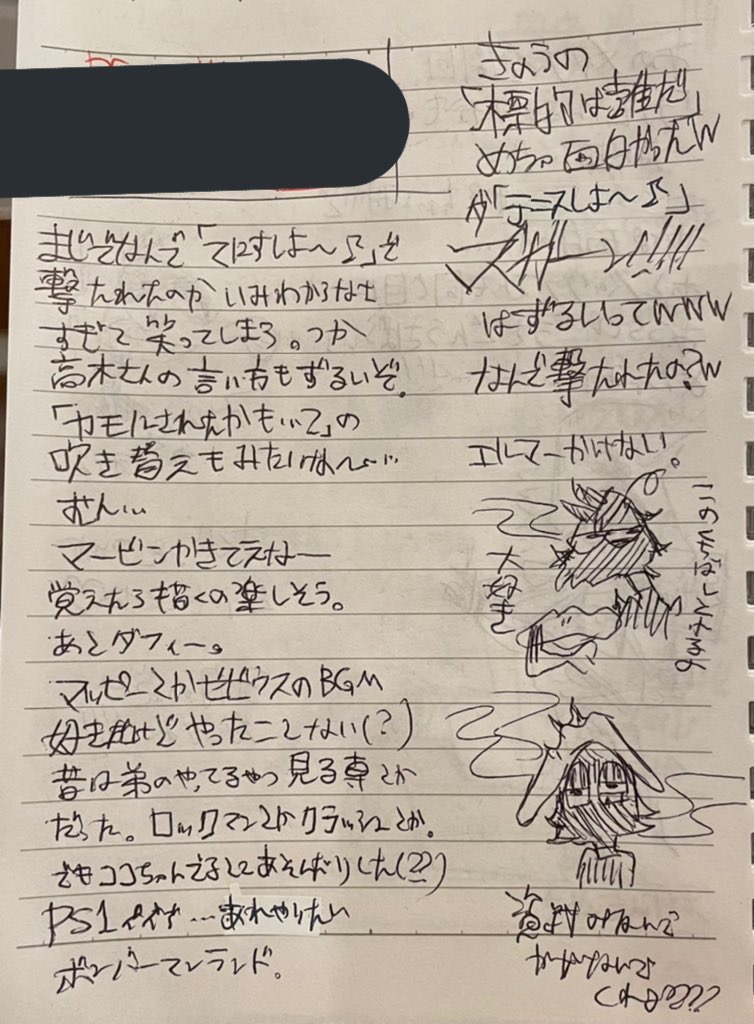 きょうの
「標的は誰だ」
めちゃ面白かったW
が「テニスしよ〜♪」
ズガーン!!!!!
はずるいってWWW
なんで撃たれたの?W
エルマーかけない。
まじでなんで「てにすしよ〜♪」で
撃たれたのか いみわからなさ
すぎて 笑ってしまう。つか
高木さんの言い方もずるいぞ。
「カモにされたかもって」の
吹き替えもみたいな〜…
むん…
マービンかきてえなー
覚えたら描くの楽しそう。
あとダフィー。
マッピーとかゼビウスのBGM
好きだけど やったことない(?)
昔は弟のやってるやつ 見る専とか
だった。ロックマンとかクラッシュとか。
でもココちゃんでるし あそんだりした(??)
PS1 … あれやりたい
ボンバーマンランド。
このくちばしとさるき
大好き
資料みなんで
かかないんで